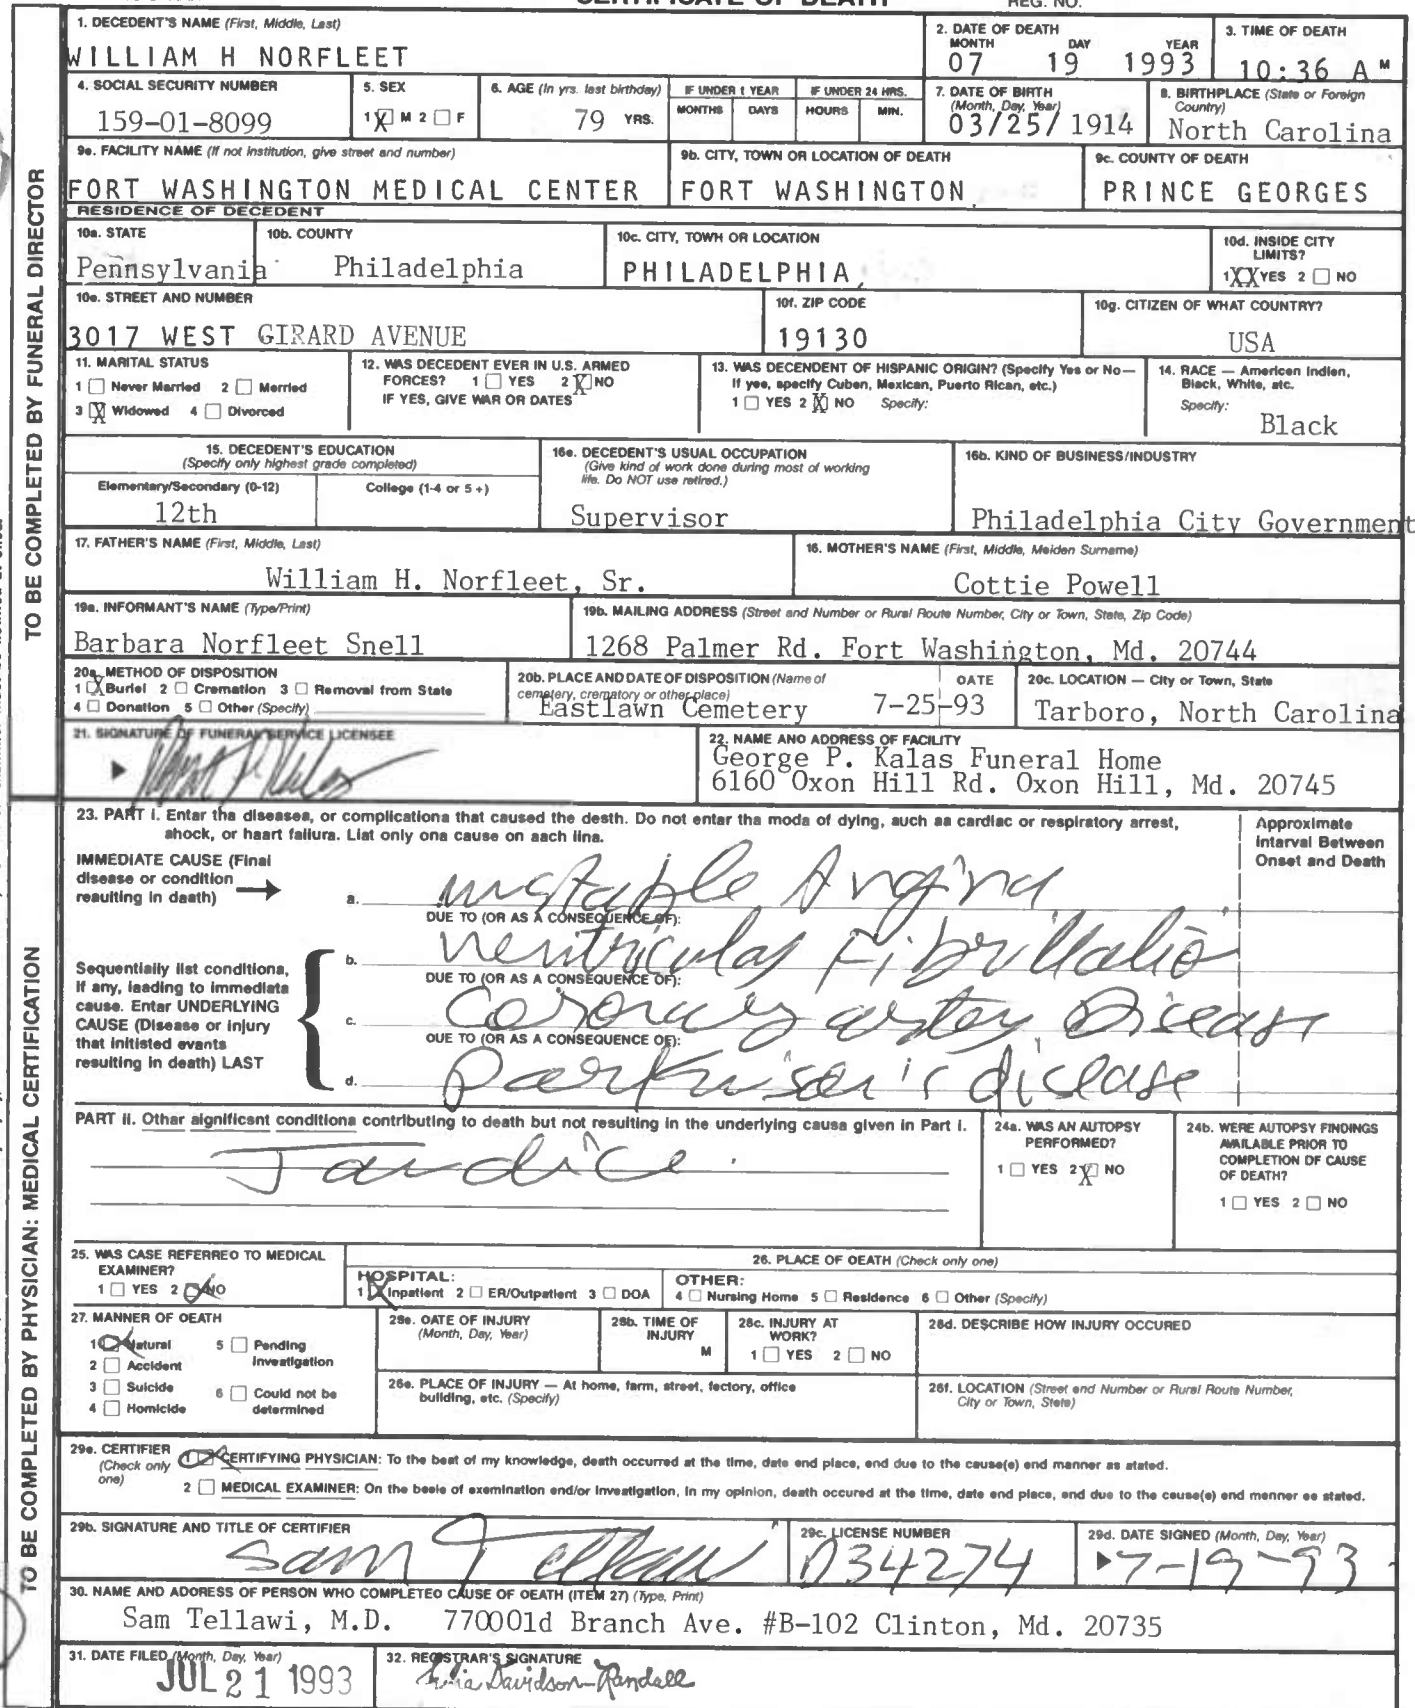 CERTIFICATE OF DEATH REG. NO.
1. DECEDENT'S NAME (First, Middle, Last)
WILLIAM H NORFLEET
2. DATE OF DEATH
MONTH DAY YEAR
07 19 1993
3. TIME OF DEATH
10:36 A M
4. SOCIAL SECURITY NUMBER
159-01-8099
5. SEX
1 X M 2 □ F
6. AGE (In yrs. last birthday)
79 YRS.
IF UNDER 1 YEAR
MONTHS DAYS
IF UNDER 24 HRS.
HOURS MIN.
7. DATE OF BIRTH
(Month, Day, Year)
03/25/1914
8. BIRTHPLACE (State or Foreign
Country)
North Carolina
9a. FACILITY NAME (If not institution, give street and number)
FORT WASHINGTON MEDICAL CENTER
9b. CITY, TOWN OR LOCATION OF DEATH
FORT WASHINGTON,
9c. COUNTY OF DEATH
PRINCE GEORGES
RESIDENCE OF DECEDENT
10a. STATE
Pennsylvania
10b. COUNTY
Philadelphia
10c. CITY, TOWN OR LOCATION
PHILADELPHIA,
10d. INSIDE CITY
LIMITS?
1 XX YES 2 □ NO
10e. STREET AND NUMBER
3017 WEST GIRARD AVENUE
10f. ZIP CODE
19130
10g. CITIZEN OF WHAT COUNTRY?
USA
11. MARITAL STATUS
1 □ Never Married 2 □ Married
3 X Widowed 4 □ Divorced
12. WAS DECEDENT EVER IN U.S. ARMED
FORCES? 1 □ YES 2 X NO
IF YES, GIVE WAR OR DATES
13. WAS DECENDENT OF HISPANIC ORIGIN? (Specify Yes or No—
If yes, specify Cuben, Mexican, Puerto Rican, etc.)
1 □ YES 2 X NO Specify:
14. RACE — American Indien,
Black, White, etc.
Specify:
Black
15. DECEDENT'S EDUCATION
(Specify only highest grade completed)
Elementary/Secondary (0-12) College (1-4 or 5 +)
12th
16a. DECEDENT'S USUAL OCCUPATION
(Give kind of work done during most of working
life. Do NOT use retired.)
Supervisor
16b. KIND OF BUSINESS/INDUSTRY
Philadelphia City Government
17. FATHER'S NAME (First, Middle, Last)
William H. Norfleet, Sr.
18. MOTHER'S NAME (First, Middle, Maiden Surname)
Cottie Powell
19a. INFORMANT'S NAME (Type/Print)
Barbara Norfleet Snell
19b. MAILING ADDRESS (Street and Number or Rural Route Number, City or Town, State, Zip Code)
1268 Palmer Rd. Fort Washington, Md. 20744
20a. METHOD OF DISPOSITION
1 X Buriel 2 □ Cremation 3 □ Removal from State
4 □ Donation 5 □ Other (Specify)
20b. PLACE AND DATE OF DISPOSITION (Name of
cemetery, crematory or other place) DATE
Eastlawn Cemetery 7-25-93
20c. LOCATION — City or Town, State
Tarboro, North Carolina
21. SIGNATURE OF FUNERAL SERVICE LICENSEE
22. NAME AND ADDRESS OF FACILITY
George P. Kalas Funeral Home
6160 Oxon Hill Rd. Oxon Hill, Md. 20745
TO BE COMPLETED BY FUNERAL DIRECTOR
23. PART I. Enter the diseases, or complications that caused the death. Do not enter the mode of dying, such as cardiac or respiratory arrest,
shock, or heart failure. List only one cause on each line.
Approximate
Interval Between
Onset and Death
IMMEDIATE CAUSE (Final
disease or condition
resulting in death)
a. unstable Angina
DUE TO (OR AS A CONSEQUENCE OF):
b. Ventricular Fibrillatio
DUE TO (OR AS A CONSEQUENCE OF):
c. Coronary artery Disease
DUE TO (OR AS A CONSEQUENCE OF):
d. Parkinson's disease
Sequentially list conditions,
If any, leading to immediate
cause. Enter UNDERLYING
CAUSE (Disease or injury
that initiated events
resulting in death) LAST
PART II. Other significant conditions contributing to death but not resulting in the underlying cause given in Part I.
Jandice
24a. WAS AN AUTOPSY
PERFORMED?
1 □ YES 2 X NO
24b. WERE AUTOPSY FINDINGS
AVAILABLE PRIOR TO
COMPLETION OF CAUSE
OF DEATH?
1 □ YES 2 □ NO
25. WAS CASE REFERRED TO MEDICAL
EXAMINER?
1 □ YES 2 X NO
26. PLACE OF DEATH (Check only one)
HOSPITAL:
1 X Inpatient 2 □ ER/Outpatient 3 □ DOA
OTHER:
4 □ Nursing Home 5 □ Residence 6 □ Other (Specify)
27. MANNER OF DEATH
1 X Natural 5 □ Pending
Investigation
2 □ Accident
3 □ Suicide 6 □ Could not be
determined
4 □ Homicide
28a. DATE OF INJURY
(Month, Day, Year)
28b. TIME OF
INJURY
M
28c. INJURY AT
WORK?
1 □ YES 2 □ NO
28d. DESCRIBE HOW INJURY OCCURED
28e. PLACE OF INJURY — At home, farm, street, factory, office
building, etc. (Specify)
28f. LOCATION (Street and Number or Rural Route Number,
City or Town, State)
29a. CERTIFIER
(Check only
one)
1 X CERTIFYING PHYSICIAN: To the best of my knowledge, death occurred at the time, date and place, and due to the cause(s) and manner as stated.
2 □ MEDICAL EXAMINER: On the basis of examination and/or investigation, in my opinion, death occured at the time, date and place, and due to the cause(s) and manner as stated.
29b. SIGNATURE AND TITLE OF CERTIFIER
Sam Tellawi
29c. LICENSE NUMBER
D34274
29d. DATE SIGNED (Month, Day, Year)
7-19-93
30. NAME AND ADDRESS OF PERSON WHO COMPLETED CAUSE OF DEATH (ITEM 27) (Type, Print)
Sam Tellawi, M.D. 77000ld Branch Ave. #B-102 Clinton, Md. 20735
31. DATE FILED (Month, Day, Year)
JUL 21 1993
32. REGISTRAR'S SIGNATURE
Julia Davidson-Randall
TO BE COMPLETED BY PHYSICIAN: MEDICAL CERTIFICATION